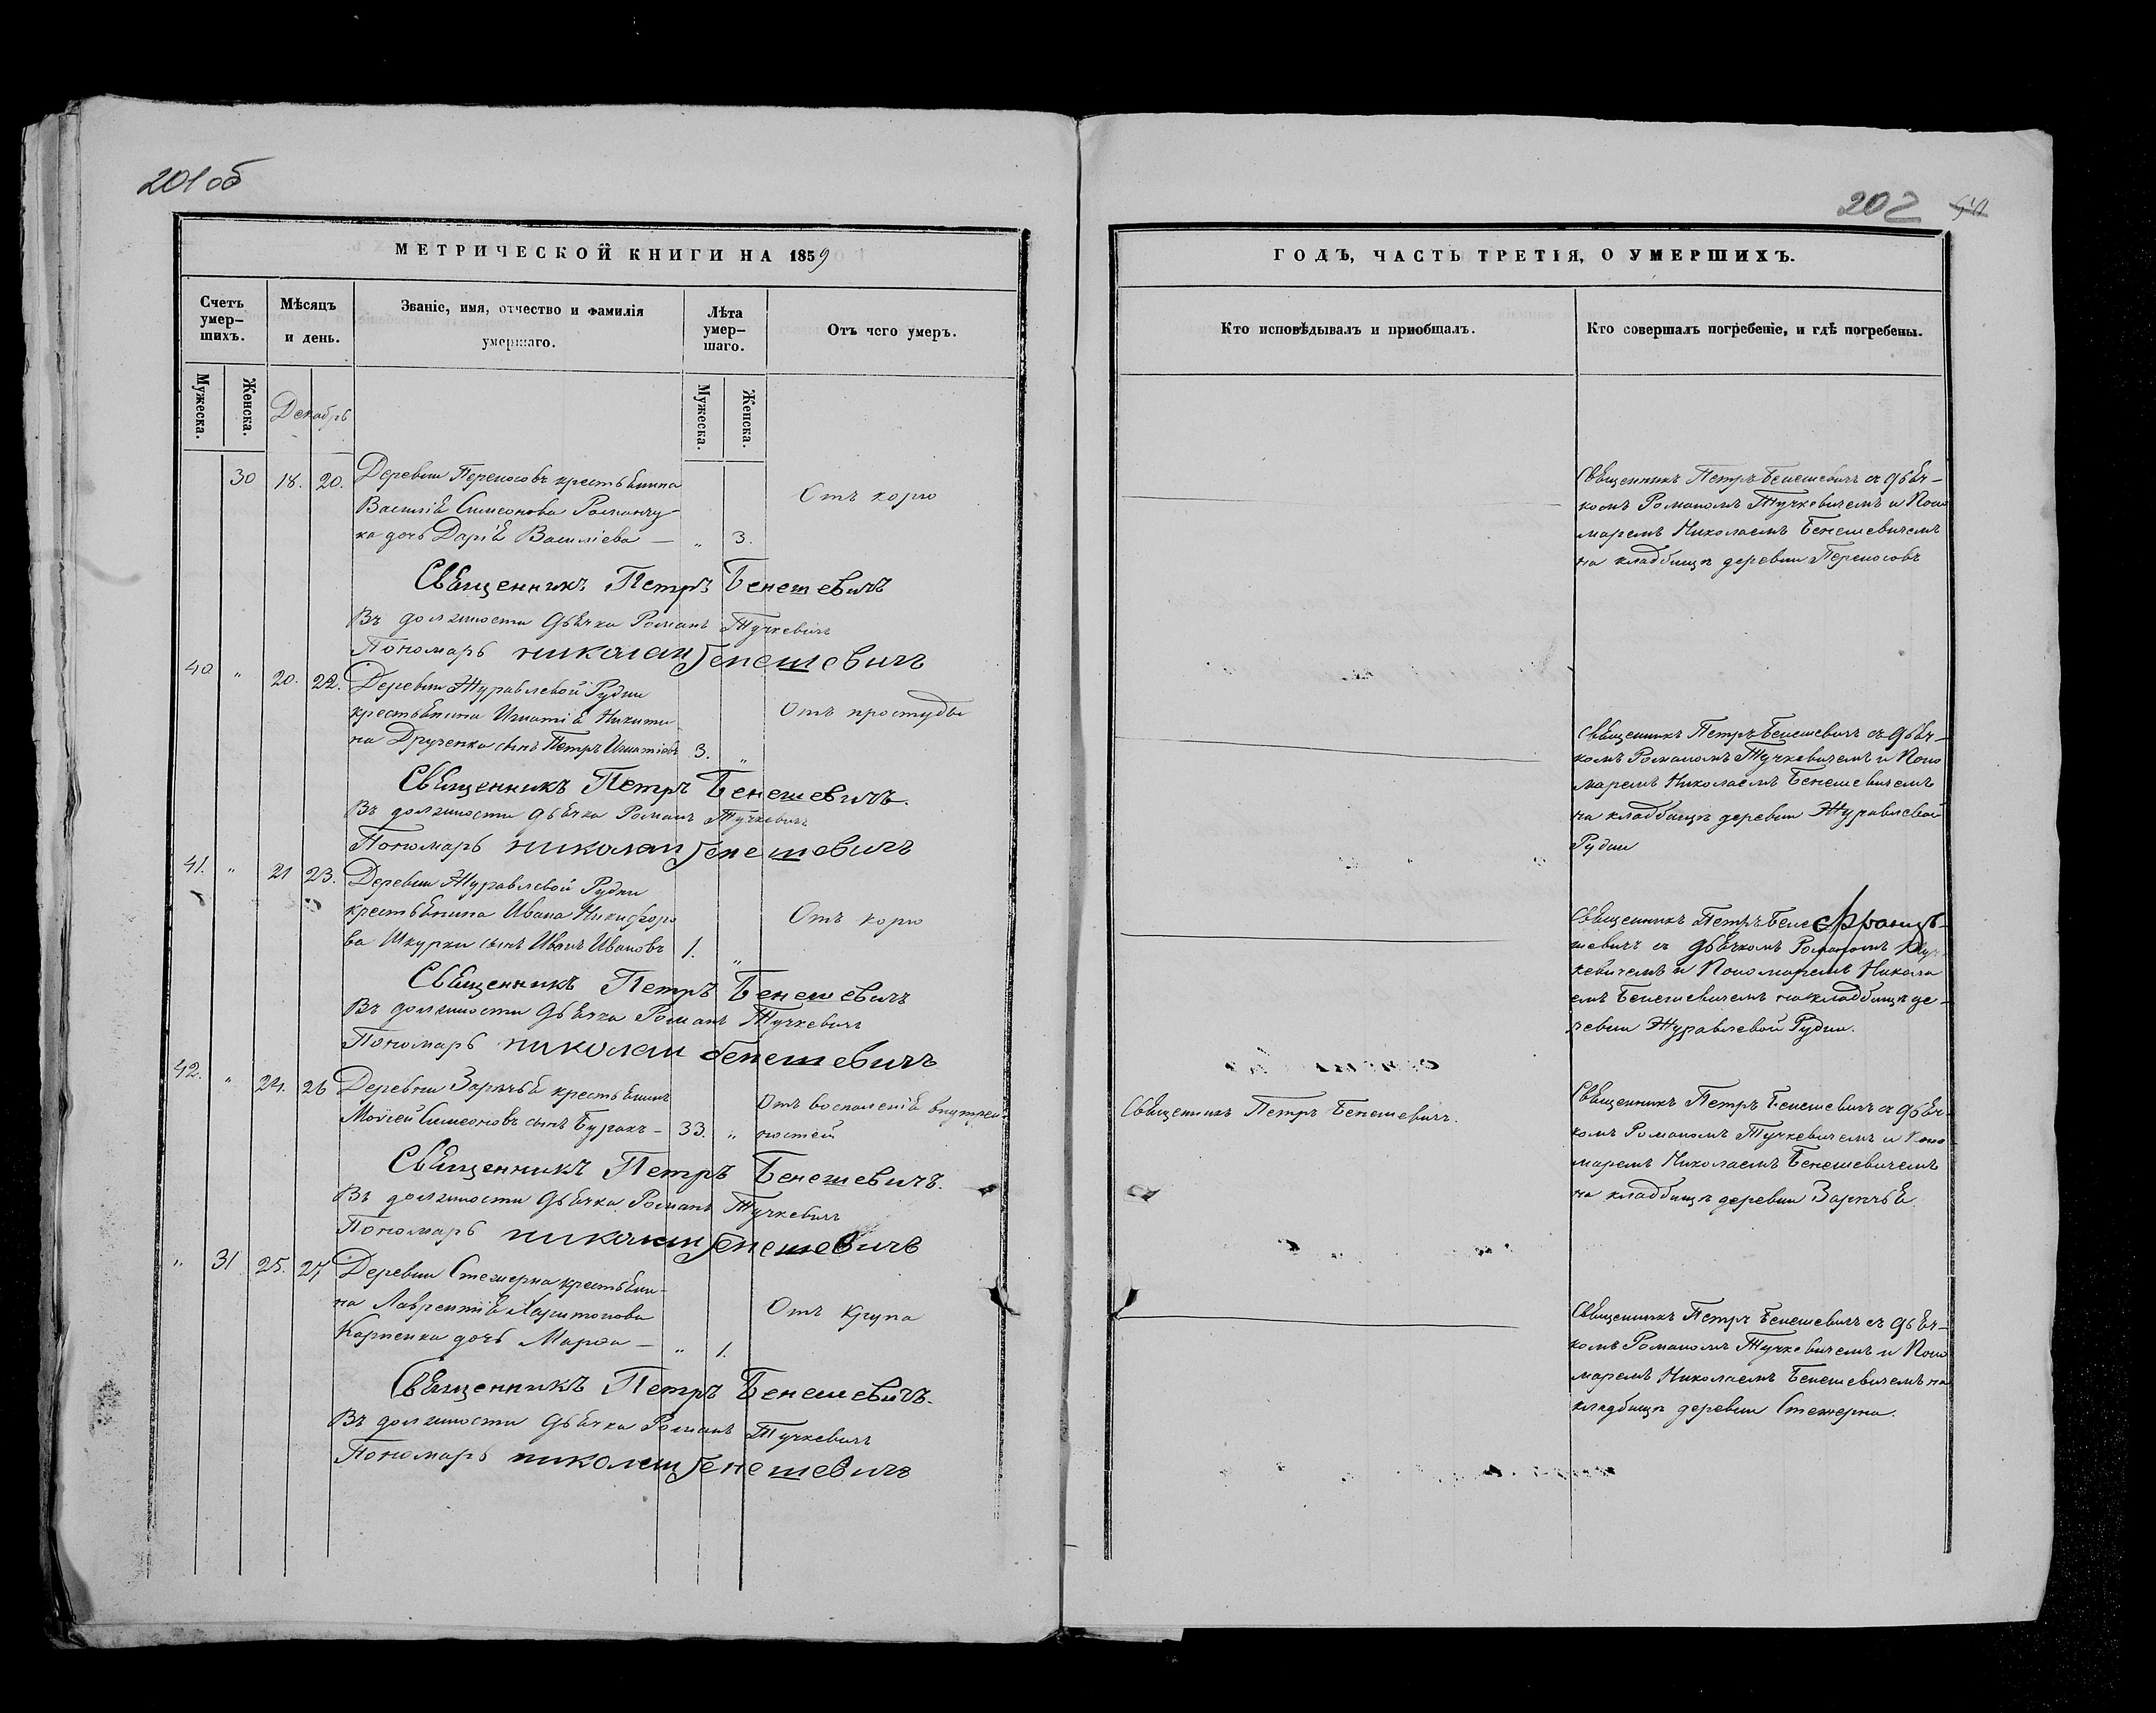 201 об
202
МЕТРИЧЕСКОЙ КНИГИ НА 1859
Счетъ умер-
шихъ.
Мѣсяцъ
и день.
Званіе, имя, отчество и фамилія
умершаго.
Лѣта
умер-
шаго.
Отъ чего умеръ.
Мужеска.
Женска.
Декабрь
Мужеска.
Женска.
30 18. 20. Деревни Переносовъ крестьянина
Василія Симеонова Романчу-
ка дочь Дарія Василіева — „ 3.
Отъ корю
Священникъ Петръ Бенешевичъ
Въ должности дьячка Романъ Тучкевичъ
Пономарь николаи бенешевичъ
40 „ 20. 22. Деревни Журавлевой Рудни
крестьянина Игнатія Никити
на Друченка сынъ Петръ Игнатіевъ 3. „
Отъ простуды
Священникъ Петръ Бенешевичъ.
Въ должности дьячка Романъ Тучкевичъ
Пономарь николаи бенешевичъ
41. „ 21 23. Деревни Журавлевой Рудни
крестьянина Ивана Никифоро
ва Шкурки сынъ Иванъ Ивановъ 1. „
Отъ корю
Священникъ Петръ Бенешевичъ
Въ должности дьячка Романъ Тучкевичъ
Пономарь николаи бенешевичъ
42. „ 24. 26 Деревни Зарѣчья крестьянинъ
Моисей Симеоновъ сынъ Буракъ — 33. „
Отъ воспаленія внутрен-
ностей
Священникъ Петръ Бенешевичъ.
Въ должности дьячка Романъ Тучкевичъ
Пономарь николаи бенешевичъ
„ 31 25. 27 Деревни Стежерна крестьяни-
на Лаврентія Харитонова
Карпенка дочь Марѳа — „ 1.
Отъ крупа
Священникъ Петръ Бенешевичъ.
Въ должности дьячка Романъ Тучкевичъ
Пономарь николаи бенешевичъ
ГОДЪ, ЧАСТЬ ТРЕТІЯ, О УМЕРШИХЪ.
Кто исповѣдывалъ и приобщалъ.
Кто совершалъ погребеніе, и гдѣ погребены.
Священникъ Петръ Бенешевичъ съ дьяч-
комъ Романомъ Тучкевичемъ и Поно
маремъ Николаемъ Бенешевичемъ
на кладбищѣ деревни Переносовъ
Священникъ Петръ Бенешевичъ съ дьяч-
комъ Романомъ Тучкевичемъ и Поно
маремъ Николаемъ Бенешевичемъ
на кладбищѣ деревни Журавлевой
Рудни
Священникъ Петръ Бене
шевичъ съ дьячкомъ Романомъ Туч
кевичемъ и Пономаремъ Никола
емъ Бенешевичемъ на кладбищѣ де-
ревни Журавлевой Рудни.
Священникъ Петръ Бенешевичъ.
Священникъ Петръ Бенешевичъ съ дьяч-
комъ Романомъ Тучкевичемъ и Поно
маремъ Николаемъ Бенешевичемъ
на кладбищѣ деревни Зарѣчья
Священникъ Петръ Бенешевичъ съ дьяч-
комъ Романомъ Тучкевичемъ и Поно
маремъ Николаемъ Бенешевичемъ на
кладбищѣ деревни Стежерна.